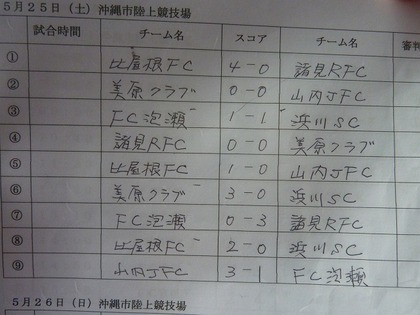 ５月２５日（土）沖縄市陸上競技場
試合時間 チーム名 スコア チーム名 審判
① 比屋根FC 4-0 諸見RFC
② 美原クラブ 0-0 山内JFC
③ FC泡瀬 1-1 浜川SC
④ 諸見RFC 0-0 美原クラブ
⑤ 比屋根FC 1-0 山内JFC
⑥ 美原クラブ 3-0 浜川SC
⑦ FC泡瀬 0-3 諸見RFC
⑧ 比屋根FC 2-0 浜川SC
⑨ 山内JFC 3-1 FC泡瀬
５月２６日（日）沖縄市陸上競技場